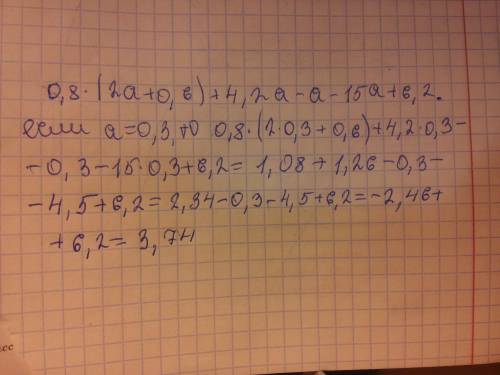 0,8·(2а+0,6)+4,2а-а-15а+6,2.
если а=0,3,то 0,8·(2·0,3+0,6)+4,2·0,3-
-0,3-15·0,3+6,2=1,08+1,26-0,3-
-4,5+6,2=2,34-0,3-4,5+6,2=-2,46+
+6,2=3,74
сс